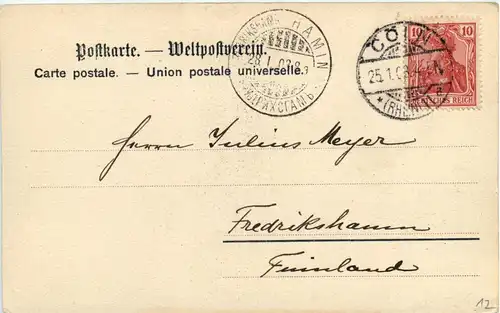 Postkarte. — Weltpostverein.
Carte postale. — Union postale universelle.
FREDRIKSHAMN HAMINA
ФРИДРИХСГАМЪ
CÖLN
25.1.03
*(RHEIN)
10 10
DEUTSCHES REICH
Herrn Julius Meyer
Fredrikshamn
Finnland
12